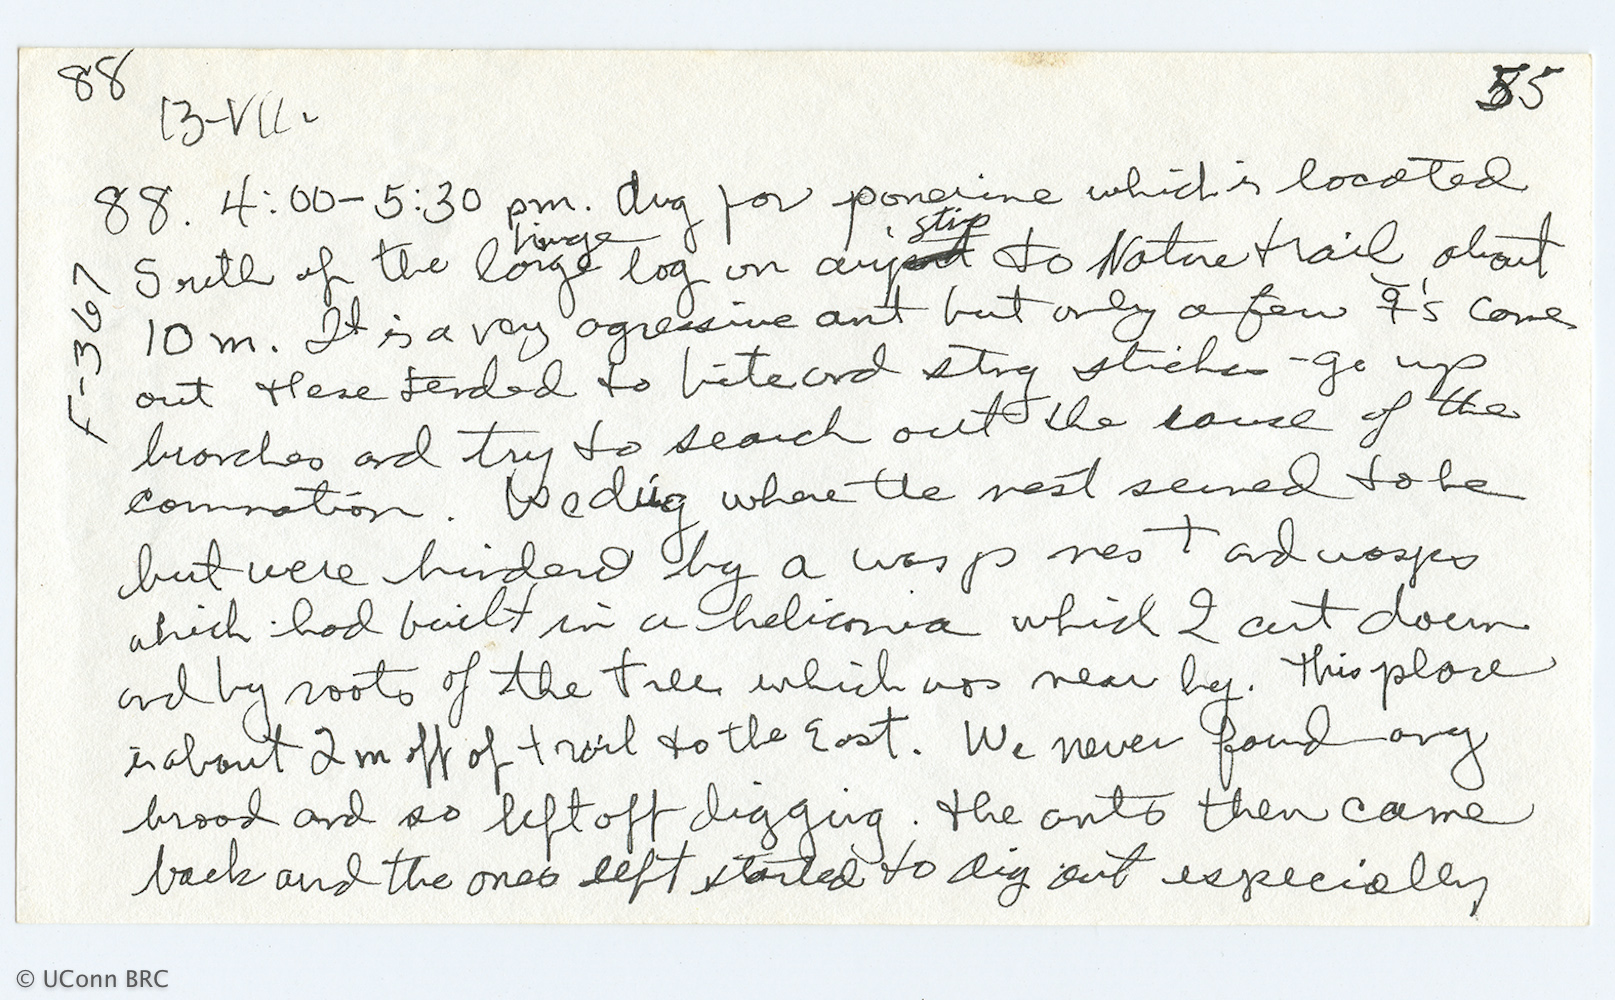 88
55
13-VII.
88. 4:00-5:30 pm. dug for ponerine which is located
South of the large log on airstrip to Nature trail about
F-367
10 m. It is a very agressive ant but only a few ☿'s come
out these tended to bite and sting sticks - go up
branches and try to search out the cause of the
commotion. We dug where the nest seemed to be
but were hinderd by a wasp nest and wasps
which had built in a heliconia which I cut down
and by roots of the tree which was near by. This place
is about 2 m off of trail to the East. We never found any
brood and so left off digging. the ants then came
back and the ones left started to dig out especially
© UConn BRC